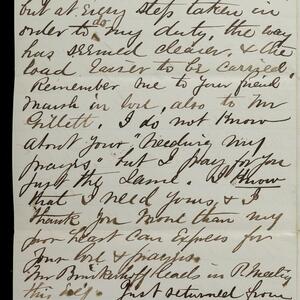 but at every step taken in
order to do my duty, the way
has seemed clearer, & the
load Easier to be carried.
Remember me to your friend
Marsh in love, also to Mr
Gillett. I do not Know
about your "Needing my
prayers" but I pray for you
Just the Same. I Know
that I need yours & I
thank you more than my
poor heart can Express for
your love & prayers.
Mr Brinkerhoff leads in P. Meeting
this Eve'g. Just returned from